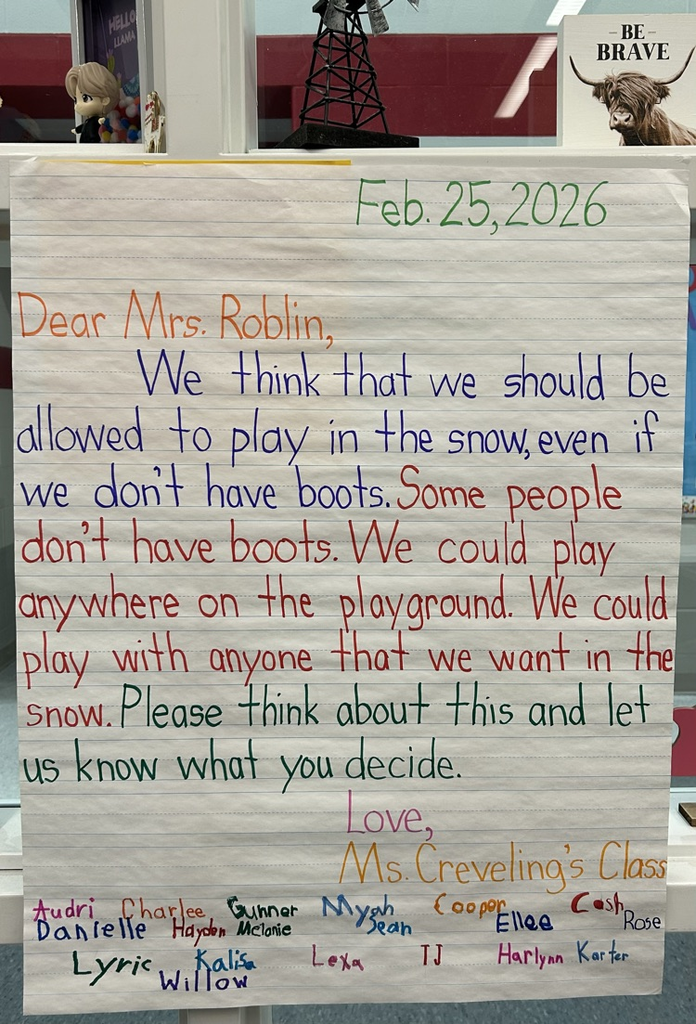 HELLO
LLAMA
- BE -
BRAVE
Feb. 25, 2026
Dear Mrs. Roblin,
We think that we should be
allowed to play in the snow, even if
we don't have boots. Some people
don't have boots. We could play
anywhere on the playground. We could
play with anyone that we want in the
snow. Please think about this and let
us know what you decide.
Love,
Ms. Creveling's Class
Audri Charlee Gunnar Myah Cooper Cash
Danielle Hayden Melanie Sean Ellee Rose
Lyric Kalisa Lexa TJ Harlynn Karter
Willow